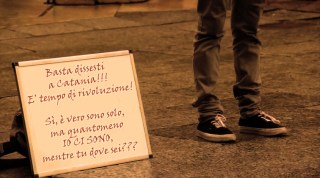 Basta dissesti
a Catania!!!
E' tempo di rivoluzione!
Sì, è vero sono solo,
ma quantomeno
IO CI SONO,
mentre tu dove sei???